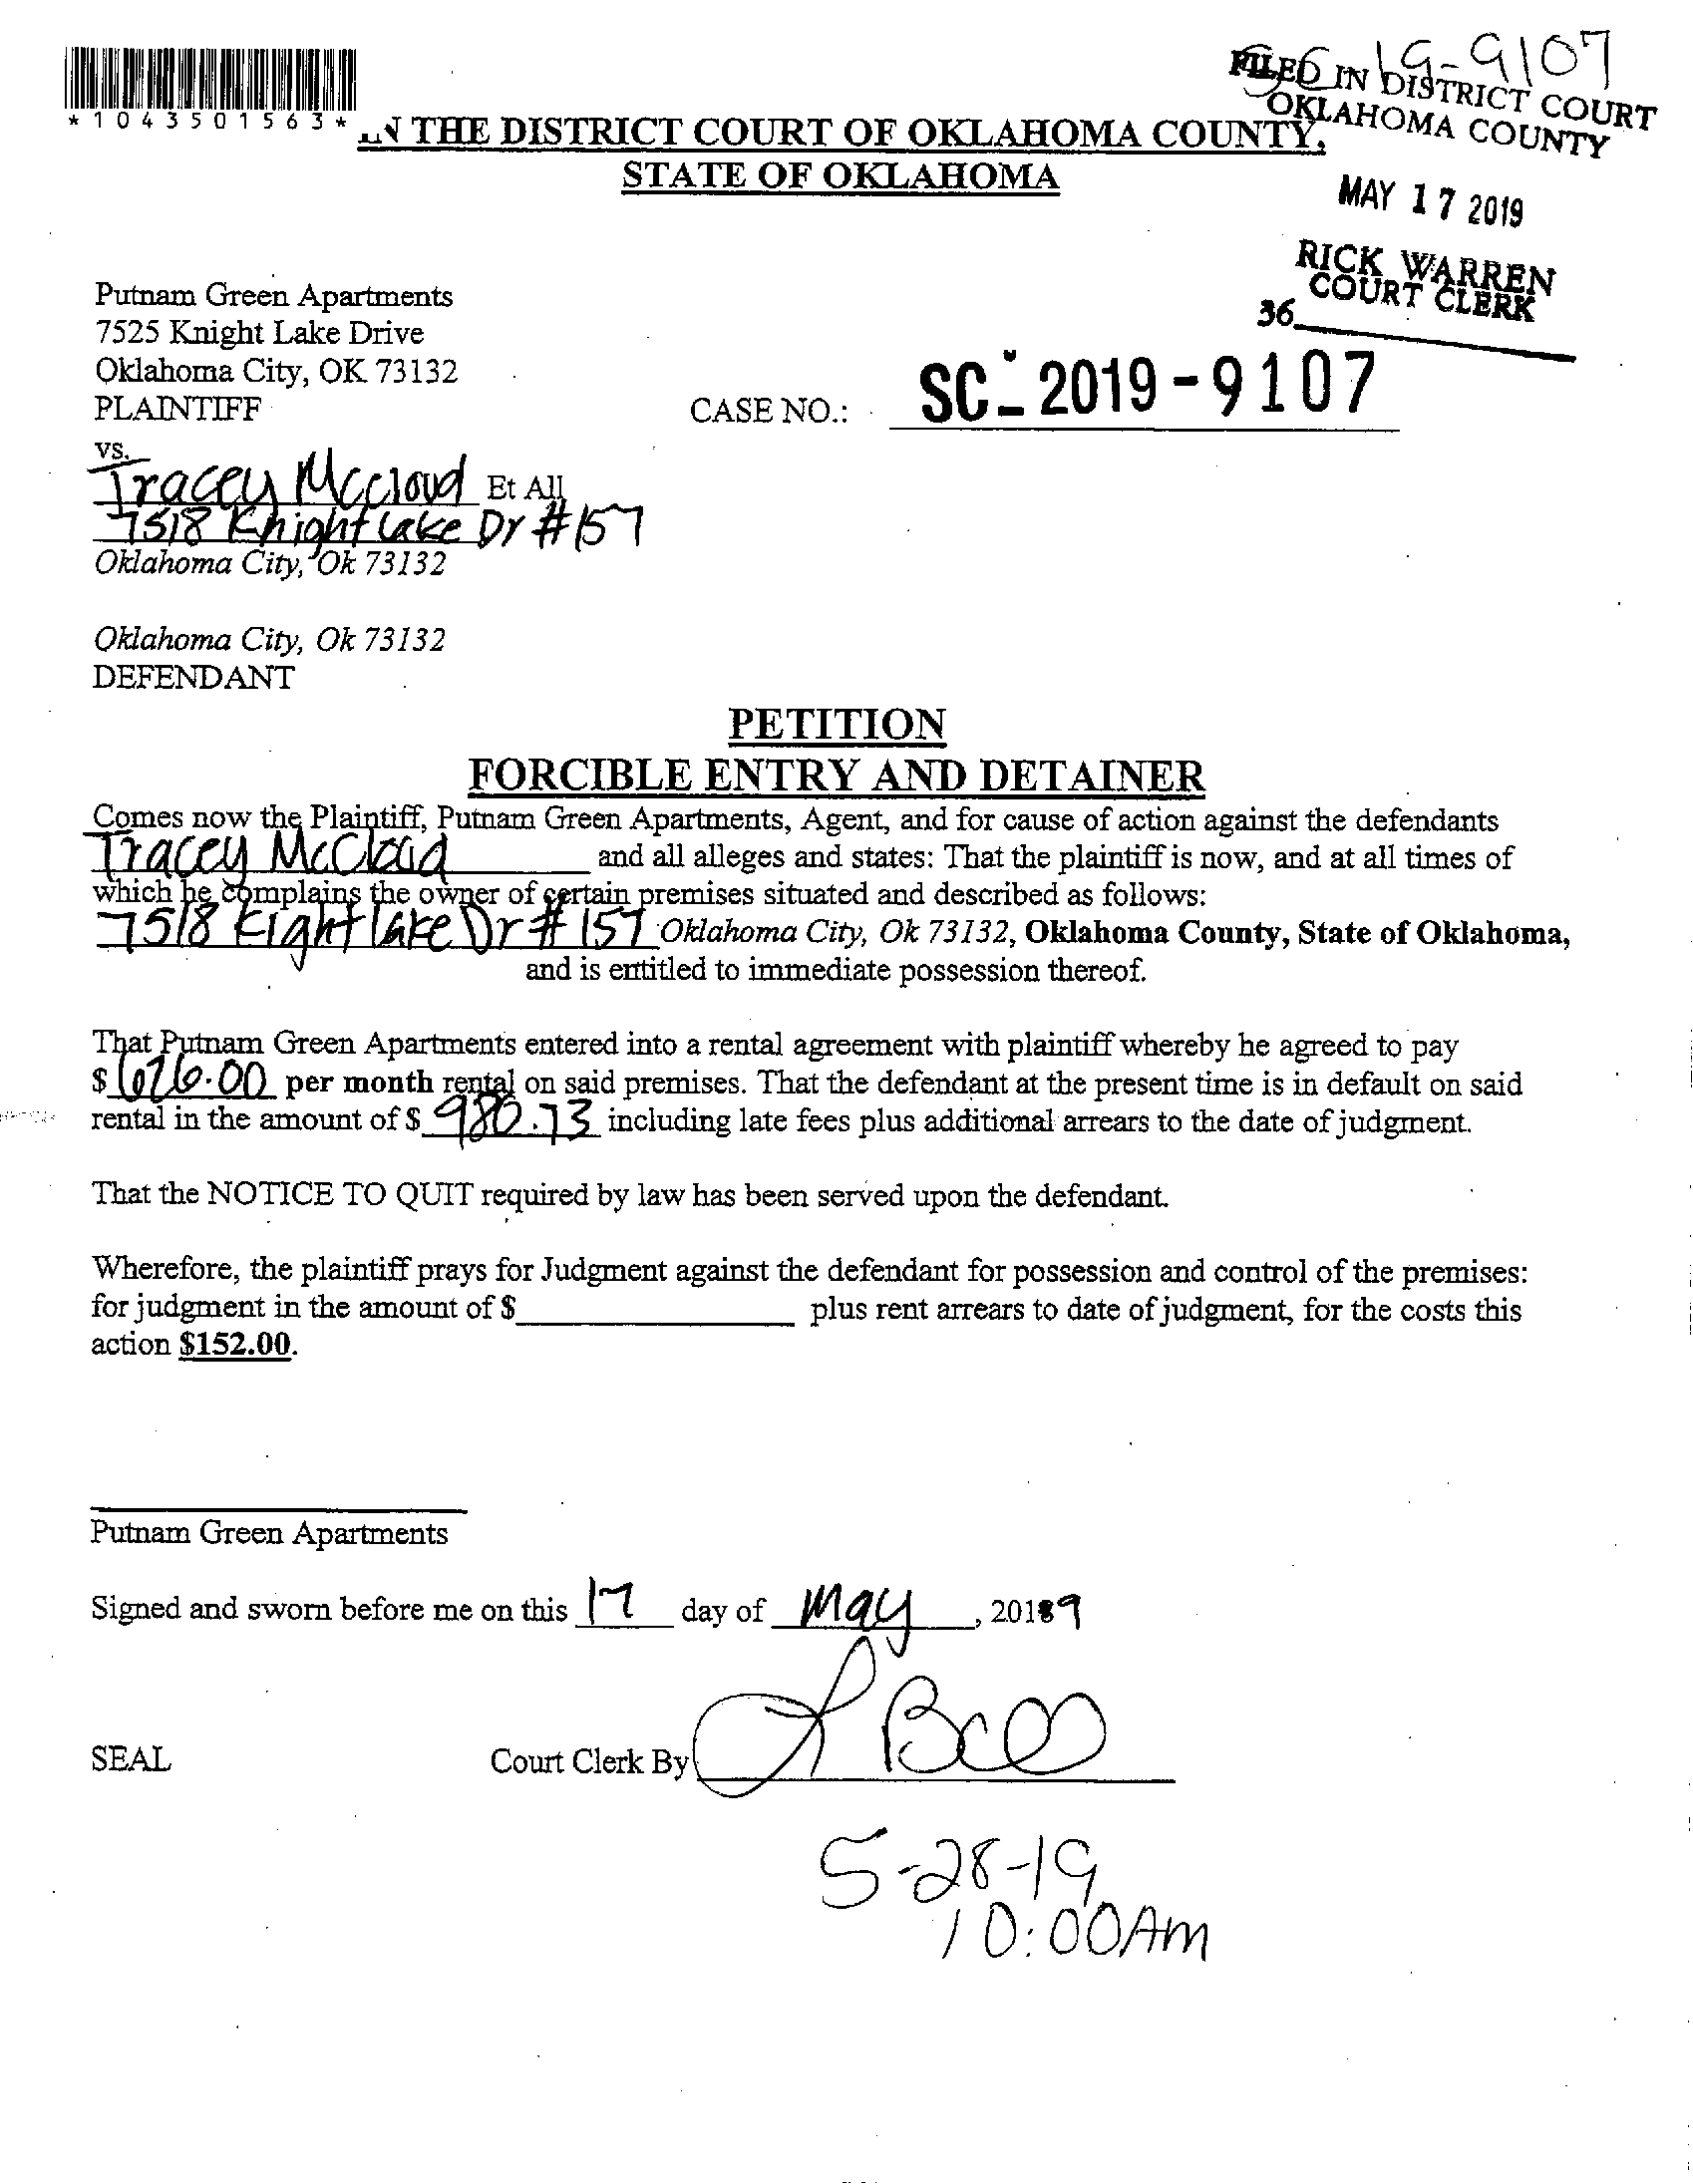 SC-19-9107
FILED IN DISTRICT COURT
OKLAHOMA COUNTY
*1043501563*
IN THE DISTRICT COURT OF OKLAHOMA COUNTY,
STATE OF OKLAHOMA
MAY 17 2019
RICK WARREN
COURT CLERK
36
Putnam Green Apartments
7525 Knight Lake Drive
Oklahoma City, OK 73132
PLAINTIFF
CASE NO.: SC-2019-9107
vs.
Tracey Mccloud Et All
7518 Knight Lake Dr #157
Oklahoma City, Ok 73132
Oklahoma City, Ok 73132
DEFENDANT
PETITION
FORCIBLE ENTRY AND DETAINER
Comes now the Plaintiff, Putnam Green Apartments, Agent, and for cause of action against the defendants
Tracey McCloud and all alleges and states: That the plaintiff is now, and at all times of
which he complains the owner of certain premises situated and described as follows:
7518 Kight lake Dr # 157 Oklahoma City, Ok 73132, Oklahoma County, State of Oklahoma,
and is entitled to immediate possession thereof.
That Putnam Green Apartments entered into a rental agreement with plaintiff whereby he agreed to pay
$ 676.00 per month rental on said premises. That the defendant at the present time is in default on said
rental in the amount of $ 980.73 including late fees plus additional arrears to the date of judgment.
That the NOTICE TO QUIT required by law has been served upon the defendant.
Wherefore, the plaintiff prays for Judgment against the defendant for possession and control of the premises:
for judgment in the amount of $ plus rent arrears to date of judgment, for the costs this
action $152.00.
Putnam Green Apartments
Signed and sworn before me on this 17 day of May, 2019
SEAL
Court Clerk By
5-28-19
10:00AM